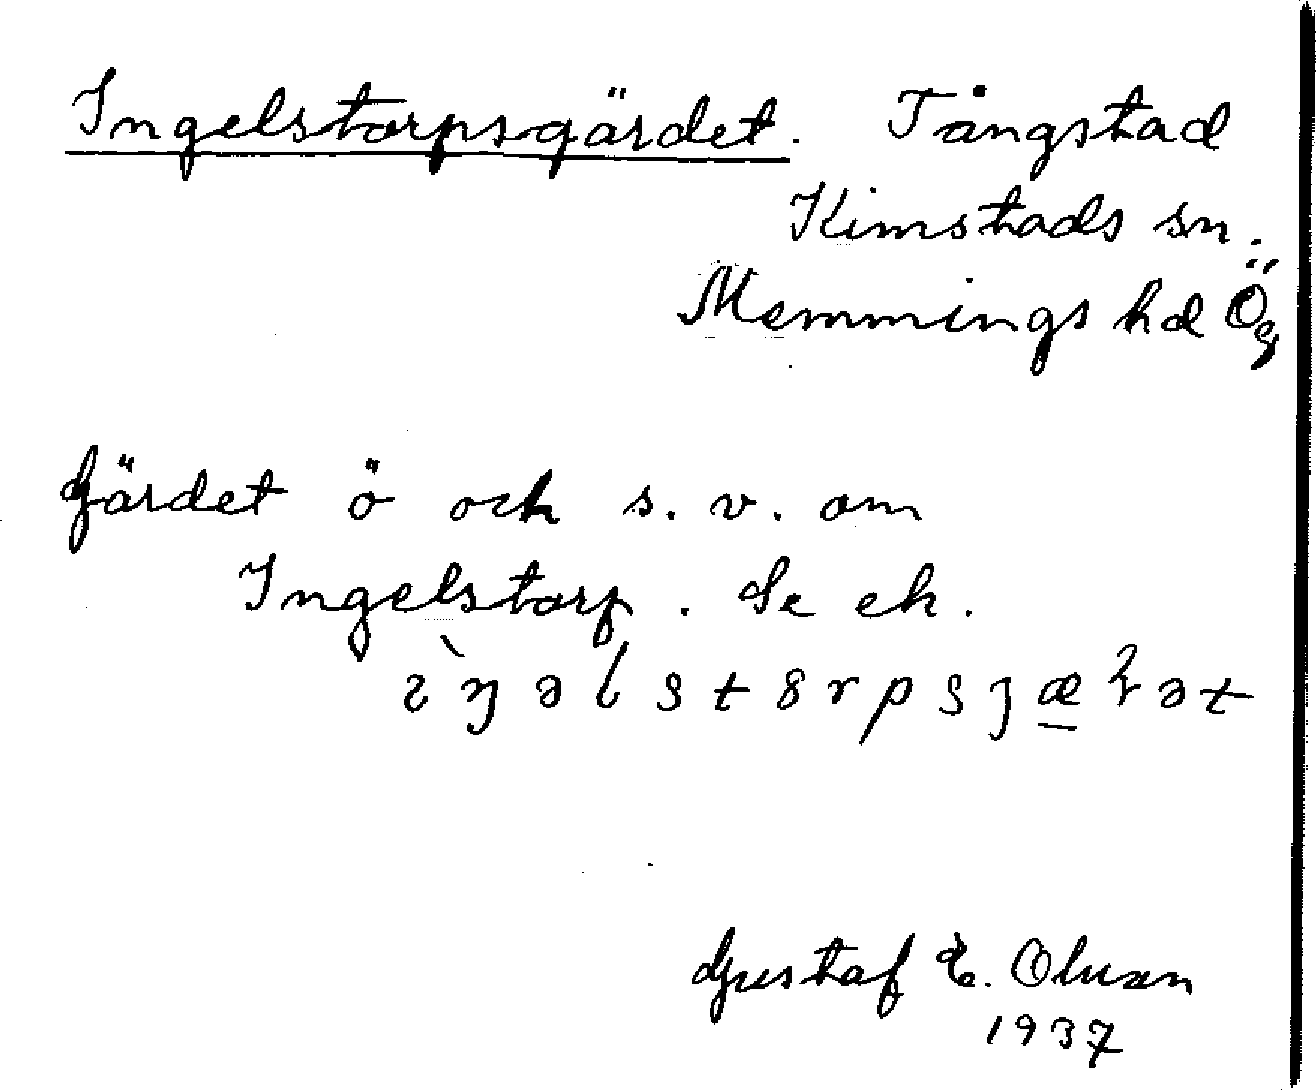 Ingelstorpsgärdet. Tångstad
Kimstads sn.
Memmings hd Ög
Gärdet ö och s. v. om
Ingelstorp. Se ek.
Gustaf E. Olsson
1937